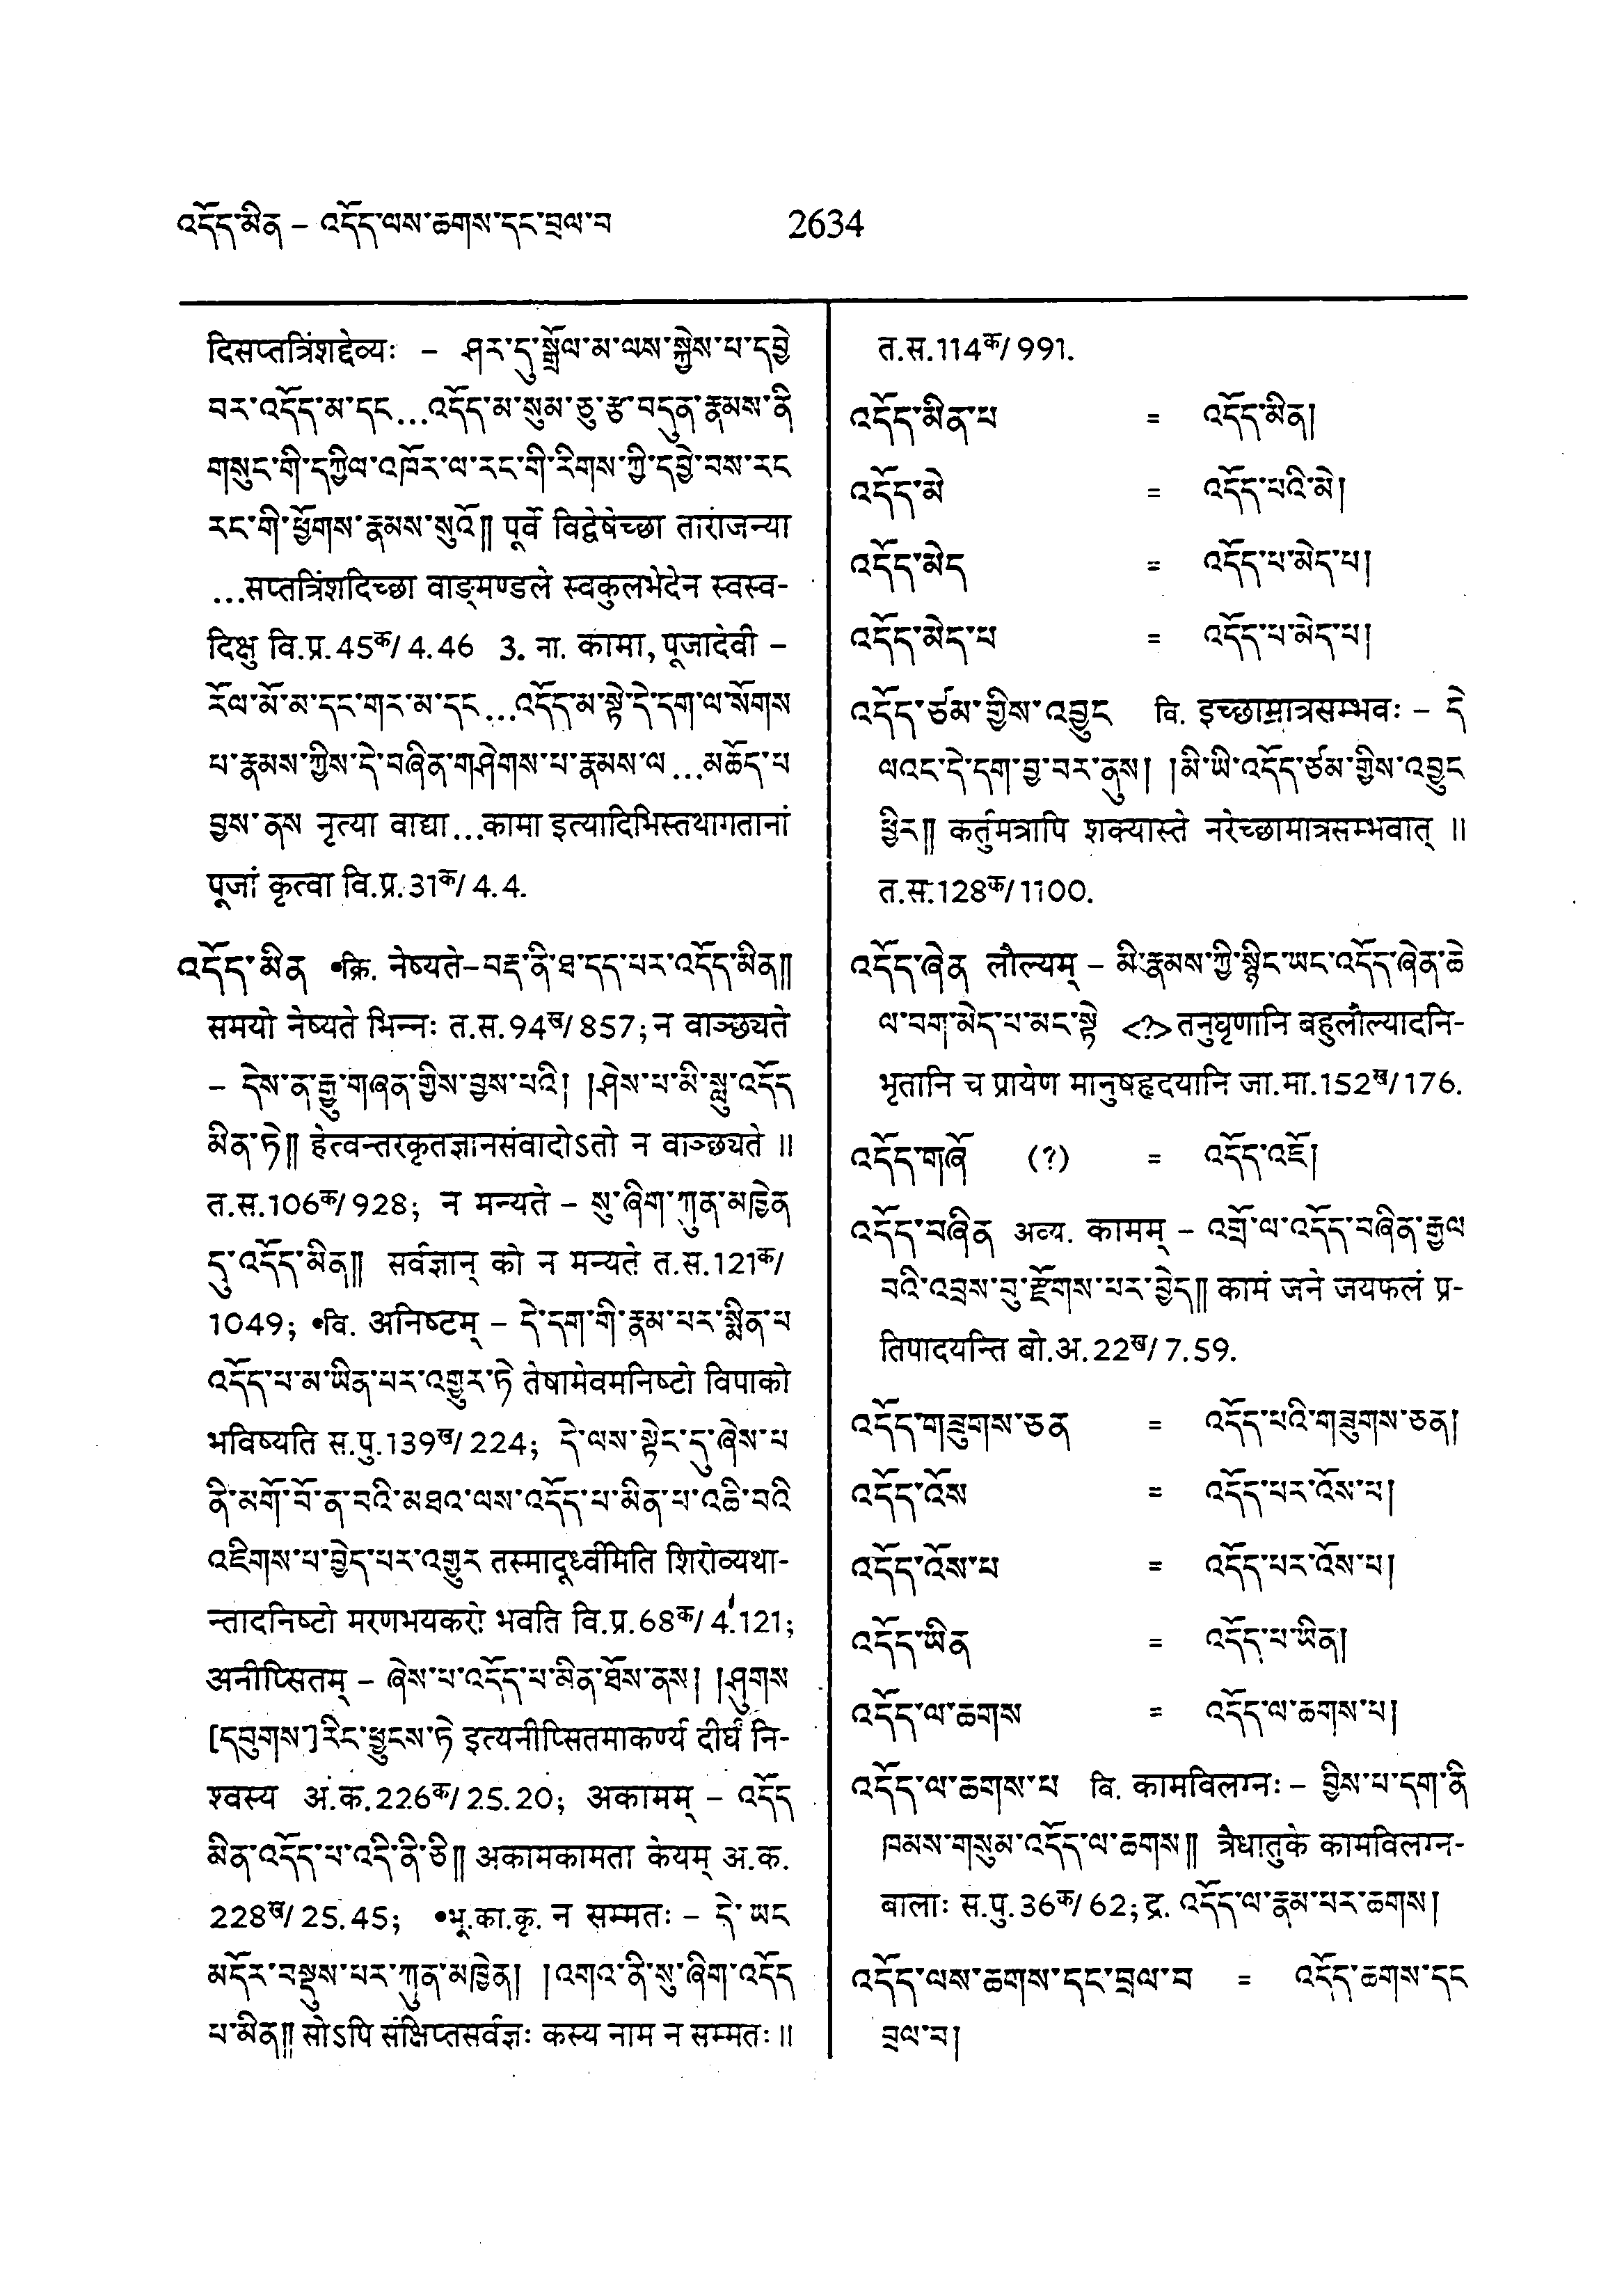 འདོད་མིན – འདོད་ལས་ཆགས་དང་བྲལ་བ 2634
दिसप्तत्रिंशद्देव्यः – ཤར་དུ་སྒྲོལ་མ་ལས་སྐྱེས་པ་དབྱེ
བར་འདོད་མ་དང...འདོད་མ་སུམ་ཅུ་རྩ་བདུན་རྣམས་ནི
གསུང་གི་དཀྱིལ་འཁོར་ལ་རང་གི་རིགས་ཀྱི་དབྱེ་བས་རང
རང་གི་ཕྱོགས་རྣམས་སུའོ༎ पूर्वे विद्वेषेच्छा ताराजन्या
...सप्तत्रिंशदिच्छा वाङ्मण्डले स्वकुलभेदेन स्वस्व-
दिक्षु वि.प्र.45क/4.46 3. ना. कामा, पूजादेवी –
རོལ་མོ་མ་དང་གར་མ་དང...འདོད་མ་སྟེ་དེ་དག་ལ་སོགས
པ་རྣམས་ཀྱིས་དེ་བཞིན་གཤེགས་པ་རྣམས་ལ...མཆོད་པ
བྱས་ནས नृत्या वाद्या...कामा इत्यादिभिस्तथागतानां
पूजां कृत्वा वि.प्र.31क/4.4.
འདོད་མིན •क्रि. नेष्यते–བརྡ་ནི་ཐ་དད་པར་འདོད་མིན༎
समयो नेष्यते भिन्नः त.स.94ख/857; न वाञ्छ्यते
– དེས་ན་རྒྱུ་གཞན་གྱིས་བྱས་པའི། །ཤེས་པ་མི་སླུ་འདོད
མིན་ཏེ༎ हेत्वन्तरकृतज्ञानसंवादोऽतो न वाञ्छ्यते ॥
त.स.106क/928; न मन्यते – སུ་ཞིག་ཀུན་མཁྱེན
དུ་འདོད་མིན༎ सर्वज्ञान् को न मन्यते त.स.121क/
1049; •वि. अनिष्टम् – དེ་དག་གི་རྣམ་པར་སྨིན་པ
འདོད་པ་མ་ཡིན་པར་འགྱུར་ཏེ तेषामेवमनिष्टो विपाको
भविष्यति स.पु.139ख/224; དེ་ལས་སྟེང་དུ་ཞེས་པ
ནི་མགོ་བོ་ན་བའི་མཐའ་ལས་འདོད་པ་མིན་པ་འཆི་བའི
འཇིགས་པ་བྱེད་པར་འགྱུར तस्मादूर्ध्वमिति शिरोव्यथा-
न्तादनिष्टो मरणभयकरो भवति वि.प्र.68क/4.121;
अनीप्सितम् – ཞེས་པ་འདོད་པ་མིན་ཐོས་ནས། །ཤུགས
[དབུགས་]རིང་ཕྱུངས་ཏེ इत्यनीप्सितमाकर्ण्य दीर्घं नि-
श्वस्य अ.क.226क/25.20; अकामम् – འདོད
མིན་འདོད་པ་འདི་ནི་ཅི༎ अकामकामता केयम् अ.क.
228ख/25.45; •भू.का.कृ. न सम्मतः – དེ་ཡང
མདོར་བསྡུས་པར་ཀུན་མཁྱེན། །འགའ་ནི་སུ་ཞིག་འདོད
པ་མིན༎ सोऽपि संक्षिप्तसर्वज्ञः कस्य नाम न सम्मतः ॥
त.स.114क/991.
འདོད་མིན་པ = འདོད་མིན།
འདོད་མེ = འདོད་པའི་མེ།
འདོད་མེད = འདོད་པ་མེད་པ།
འདོད་མེད་པ = འདོད་པ་མེད་པ།
འདོད་ཙམ་གྱིས་འབྱུང वि. इच्छामात्रसम्भवः – དེ
ལའང་དེ་དག་བྱ་བར་ནུས། །མི་ཡི་འདོད་ཙམ་གྱིས་འབྱུང
ཕྱིར༎ कर्तुमत्रापि शक्यास्ते नरेच्छामात्रसम्भवात् ॥
त.स.128क/1100.
འདོད་ཞེན लौल्यम् – མི་རྣམས་ཀྱི་སྙིང་ཡང་འདོད་ཞེན་ཆེ
ལ་བག་མེད་པ་མང་སྟེ <?> तनुघृणानि बहुलौल्यादनि-
भृतानि च प्रायेण मानुषहृदयानि जा.मा.152ख/176.
འདོད་གཞོ (?) = འདོད་འཇོ།
འདོད་བཞིན अव्य. कामम् – འགྲོ་ལ་འདོད་བཞིན་རྒྱལ
བའི་འབྲས་བུ་རྫོགས་པར་བྱེད༎ कामं जने जयफलं प्र-
तिपादयन्ति बो.अ.22ख/7.59.
འདོད་གཟུགས་ཅན = འདོད་པའི་གཟུགས་ཅན།
འདོད་འོས = འདོད་པར་འོས་པ།
འདོད་འོས་པ = འདོད་པར་འོས་པ།
འདོད་ཡིན = འདོད་པ་ཡིན།
འདོད་ལ་ཆགས = འདོད་ལ་ཆགས་པ།
འདོད་ལ་ཆགས་པ वि. कामविलग्नः – བྱིས་པ་དག་ནི
ཁམས་གསུམ་འདོད་ལ་ཆགས༎ त्रैधातुके कामविलग्न-
बालाः स.पु.36क/62; द्र. འདོད་ལ་རྣམ་པར་ཆགས།
འདོད་ལས་ཆགས་དང་བྲལ་བ = འདོད་ཆགས་དང
བྲལ་བ།